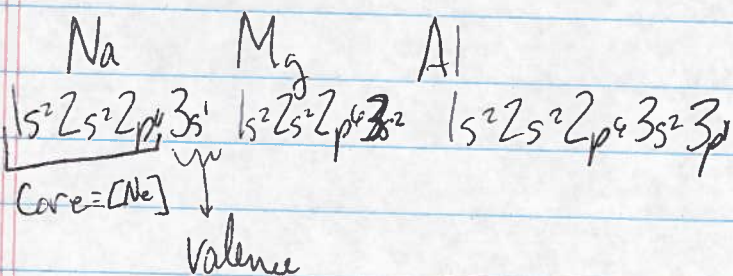 Na Mg Al
1s²2s²2p⁶3s¹ 1s²2s²2p⁶3s² 1s²2s²2p⁶3s²3p¹
Core=[Ne]
Valence